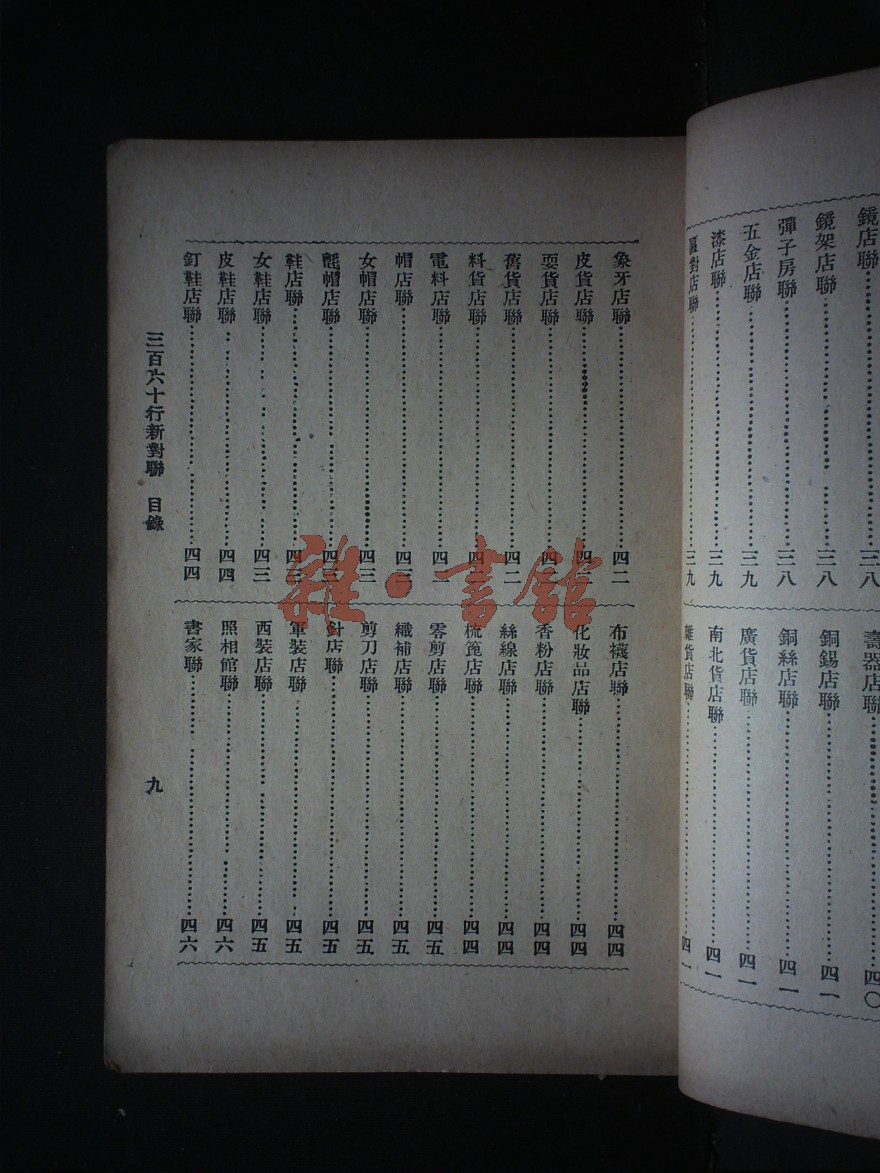 鏡店聯 三八
鏡架店聯 三八
彈子房聯 三八
五金店聯 三九
漆店聯 三九
對店聯 三九
壽器店聯 四〇
銅錫店聯 四一
銅絲店聯 四一
廣貨店聯 四一
南北貨店聯 四一
雜貨店聯 四一
象牙店聯 四二
皮貨店聯 四二
耍貨店聯 四二
舊貨店聯 四二
料貨店聯 四二
電料店聯 四二
帽店聯 四三
女帽店聯 四三
氈帽店聯 四三
鞋店聯 四三
女鞋店聯 四三
皮鞋店聯 四四
釘鞋店聯 四四
布襪店聯 四四
化妝品店聯 四四
香粉店聯 四四
絲線店聯 四四
梳篦店聯 四四
零剪店聯 四五
織補店聯 四五
剪刀店聯 四五
針店聯 四五
軍裝店聯 四五
西裝店聯 四五
照相館聯 四六
書家聯 四六
三百六十行新對聯 目錄
九
雜·書館